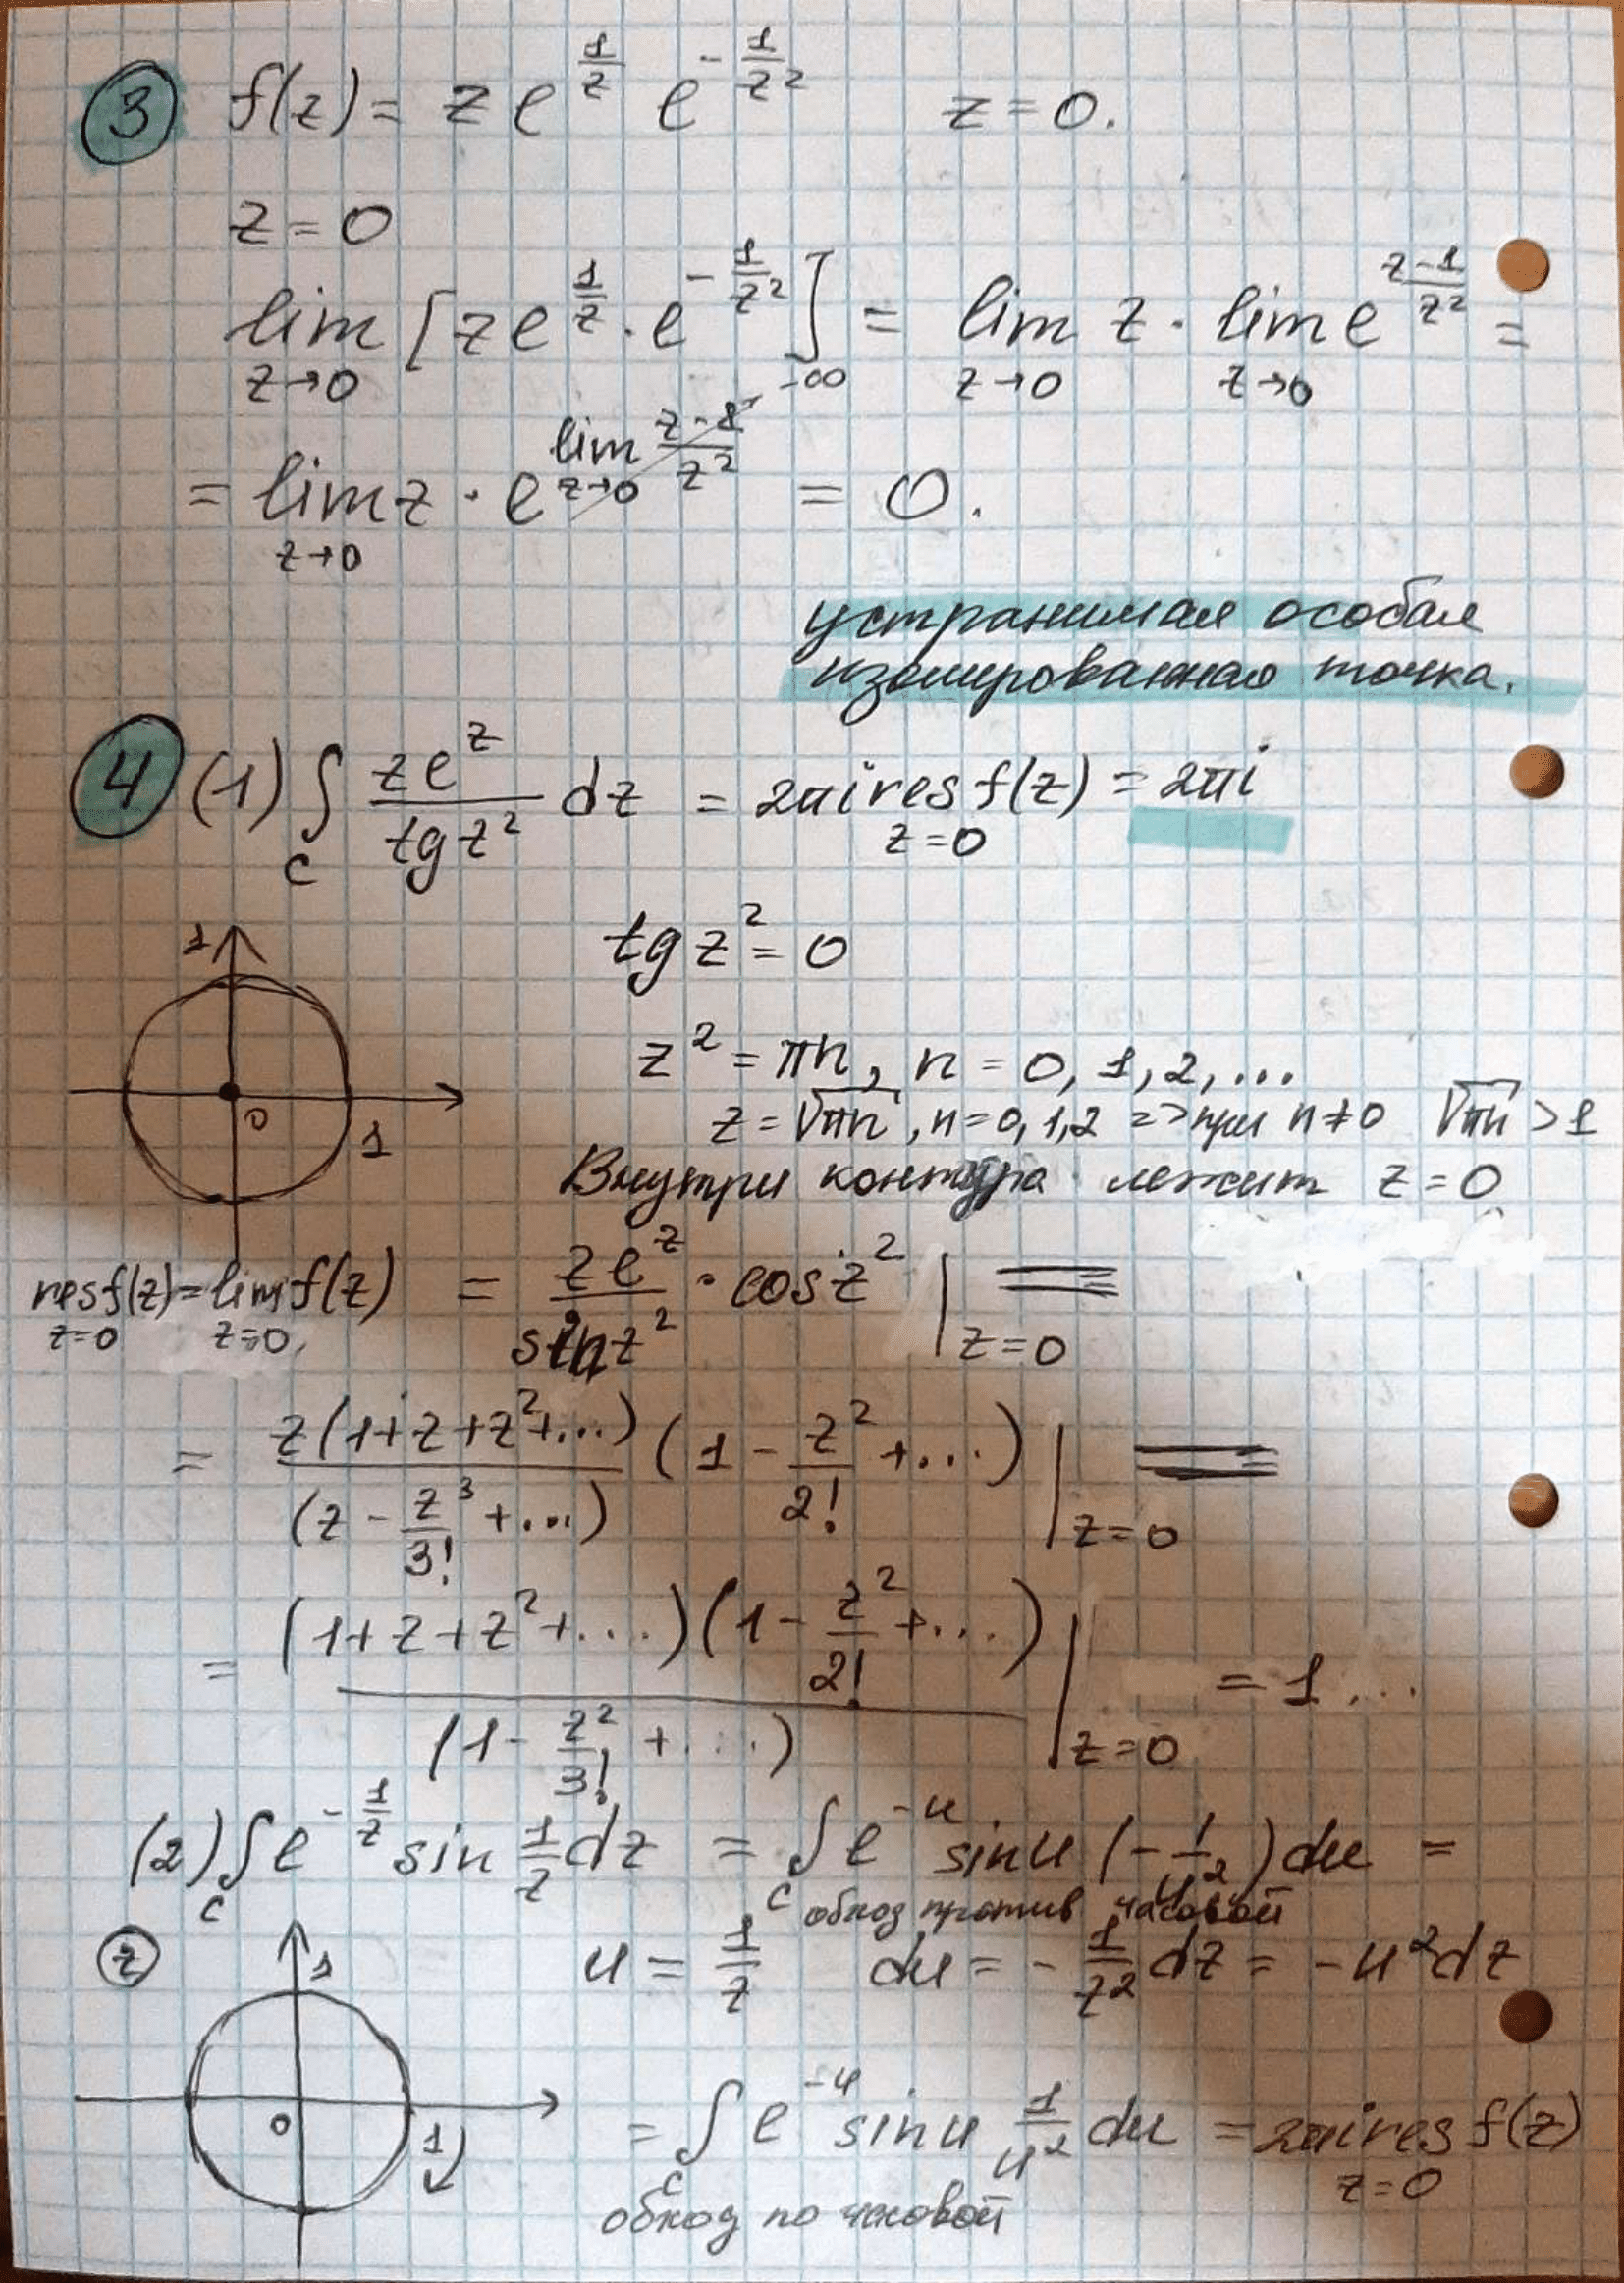 ③ f(z) = z e^{1/z} e^{-1/z²} z = 0.
z = 0
lim_{z→0} [z e^{1/z} · e^{-1/z²}] = lim_{z→0} z · lim_{z→0} e^{(z-1)/z²} =
-∞
= lim_{z→0} z · e^{lim_{z→0} (z-1)/z²} = 0.
устранимая особая
изолированная точка.
④ (1) ∫_C (z e^z)/(tg z²) dz = 2πi res_{z=0} f(z) = 2πi
tg z² = 0
1
0
1
z² = πn, n = 0, 1, 2, ...
z = √πn, n = 0,1,2 => при n ≠ 0 √πn > 1
Внутри контура лежит z = 0
res_{z=0} f(z) = lim_{z→0} f(z) = (z e^z)/(sin z²) · cos z² |_{z=0} =
= z(1+z+z²+...)/(z - z³/3! + ...) (1 - z²/2! + ...) |_{z=0} =
= (1+z+z²+...)(1 - z²/2! + ...)/(1 - z²/3! + ...) |_{z=0} = 1 ...
(2) ∫_C e^{-1/z} sin 1/z dz = ∫_C e^{-u} sin u (-1/u²) du =
обход против часовой
ⓩ u = 1/z du = -1/z² dz = -u² dz
1
0
1
= ∫_C e^{-u} sin u 1/u² du = 2πi res_{z=0} f(z)
обход по часовой